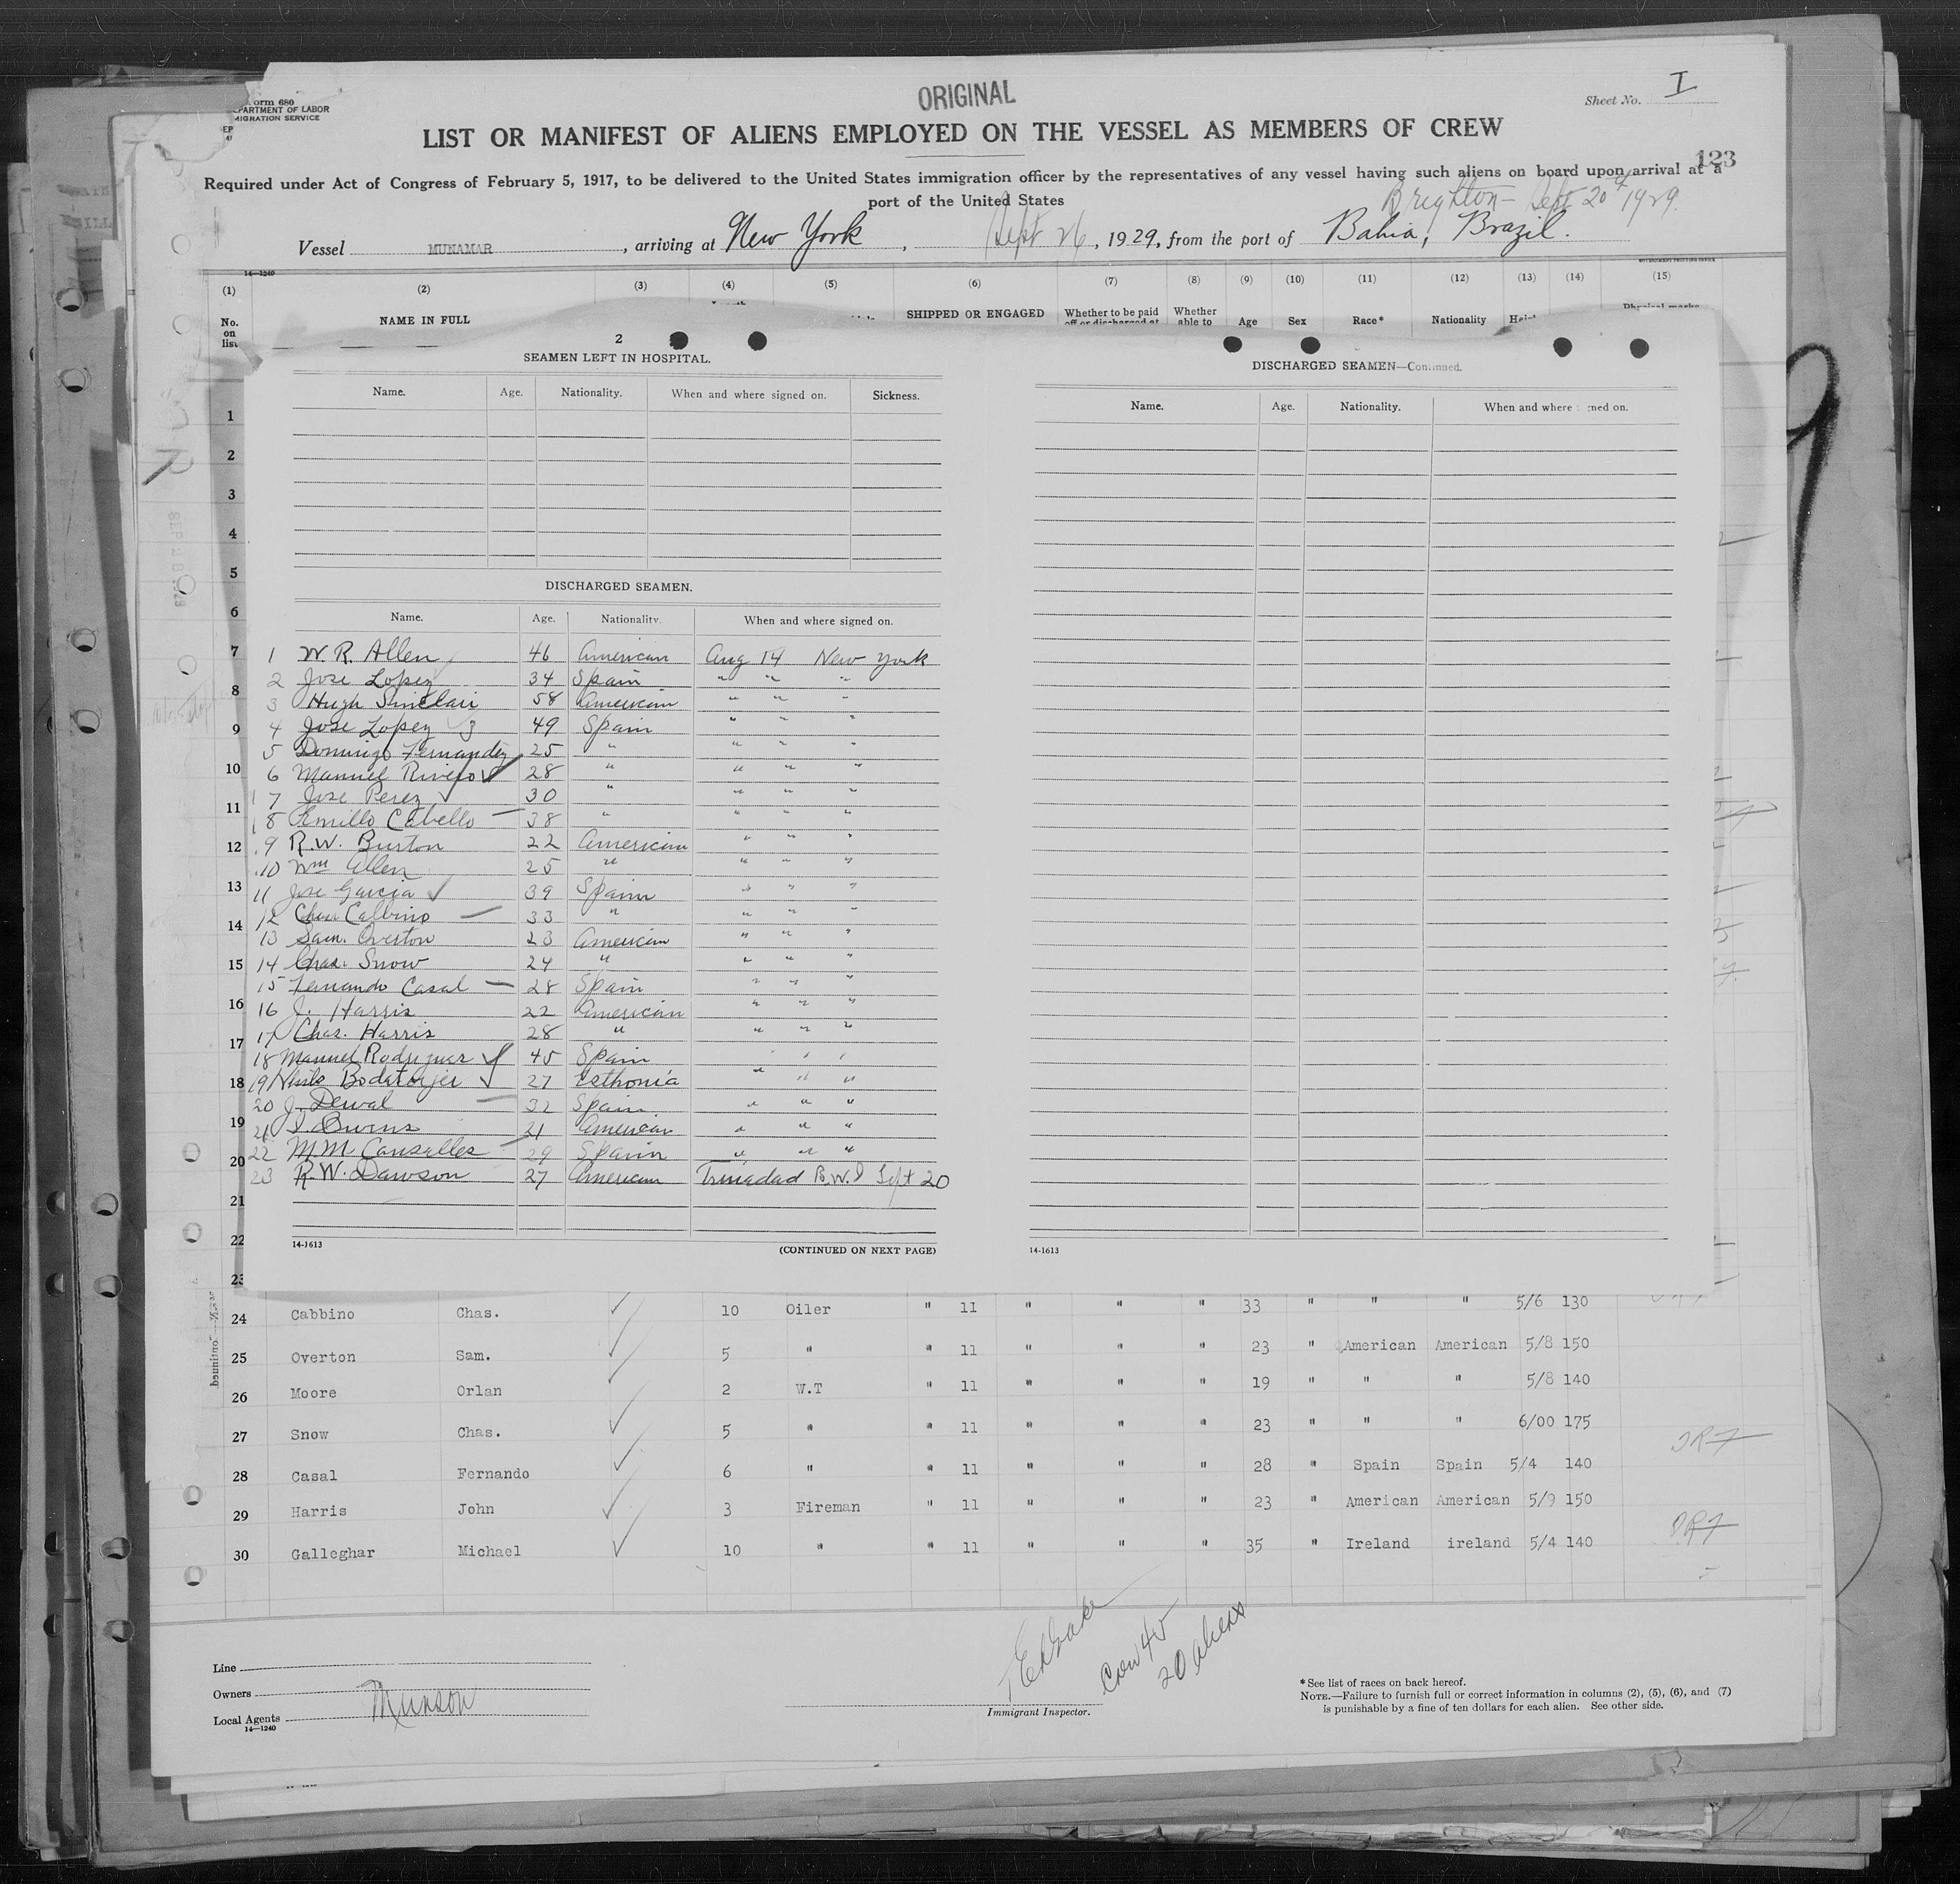 ORIGINAL
Sheet No. I
Form 680
DEPARTMENT OF LABOR
IMMIGRATION SERVICE
LIST OR MANIFEST OF ALIENS EMPLOYED ON THE VESSEL AS MEMBERS OF CREW
123
Required under Act of Congress of February 5, 1917, to be delivered to the United States immigration officer by the representatives of any vessel having such aliens on board upon arrival at a
port of the United States
Brighton - Sept 20 1929.
Vessel MUNAMAR, arriving at New York, Sept 26, 1929, from the port of Bahia, Brazil.
14-1240
(1) (2) (3) (4) (5) (6) (7) (8) (9) (10) (11) (12) (13) (14) (15)
No. on list NAME IN FULL SHIPPED OR ENGAGED Whether to be paid off or discharged at Whether able to Age Sex Race* Nationality Physical marks
2
SEAMEN LEFT IN HOSPITAL.
Name. Age. Nationality. When and where signed on. Sickness.
DISCHARGED SEAMEN.
Name. Age. Nationality. When and where signed on.
1 W. R. Allen 46 American Aug 14 New York
2 Jose Lopez 34 Spain " " "
3 Hugh Sinclair 58 American " " "
4 Jose Lopez 3 49 Spain " " "
5 Domingo Fernandez 25 " " " "
6 Manuel Rivero 28 " " " "
7 Jose Perez 30 " " " "
8 Emillo Cabello 38 " " " "
9 R.W. Burton 22 American " " "
10 Wm Allen 25 " " " "
11 Jose Garcia 39 Spain " " "
12 Chas Cabbino 33 " " " "
13 Sam. Overton 23 American " " "
14 Chas. Snow 24 " " " "
15 Fernando Casal 28 Spain " " "
16 J. Harris 22 American " " "
17 Chas. Harris 28 " " " "
18 Manuel Rodriguez 45 Spain " " "
19 27 Esthonia " " "
20 J. Dewal 32 Spain " " "
21 Owens 21 American " " "
22 M.M. Canselles 29 Spain " " "
23 R.W. Dawson 27 American Trinadad B.W.I Sept 20
14-1613
(CONTINUED ON NEXT PAGE)
DISCHARGED SEAMEN—Continued.
Name. Age. Nationality. When and where signed on.
14-1613
1
2
3
4
5
6
7
8
9
10
11
12
13
14
15
16
17
18
19
20
21
22
23
24 Cabbino Chas. 10 Oiler " 11 " " " 33 " " " 5/6 130
25 Overton Sam. 5 " " 11 " " " 23 " American American 5/8 150
26 Moore Orlan 2 W.T " 11 " " " 19 " " " 5/8 140
27 Snow Chas. 5 " " 11 " " " 23 " " " 6/00 175
28 Casal Fernando 6 " " 11 " " " 28 " Spain Spain 5/4 140
29 Harris John 3 Fireman " 11 " " " 23 " American American 5/9 150
30 Galleghar Michael 10 " " 11 " " " 35 " Ireland ireland 5/4 140
Crew 45
20 aliens
Line
Owners Munson
Local Agents
14-1240
Immigrant Inspector.
* See list of races on back hereof.
NOTE.—Failure to furnish full or correct information in columns (2), (5), (6), and (7)
is punishable by a fine of ten dollars for each alien. See other side.